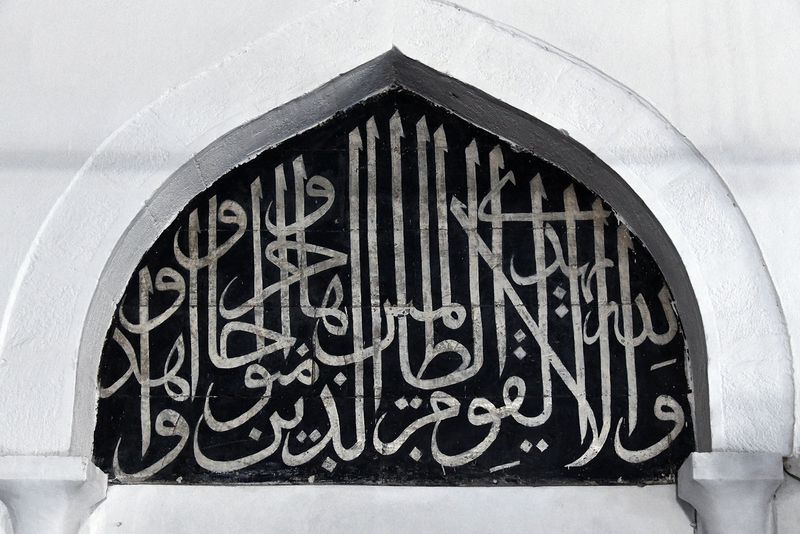 والله لا يهدى القوم الظالمين الذين امنوا وهاجروا وجاهدوا